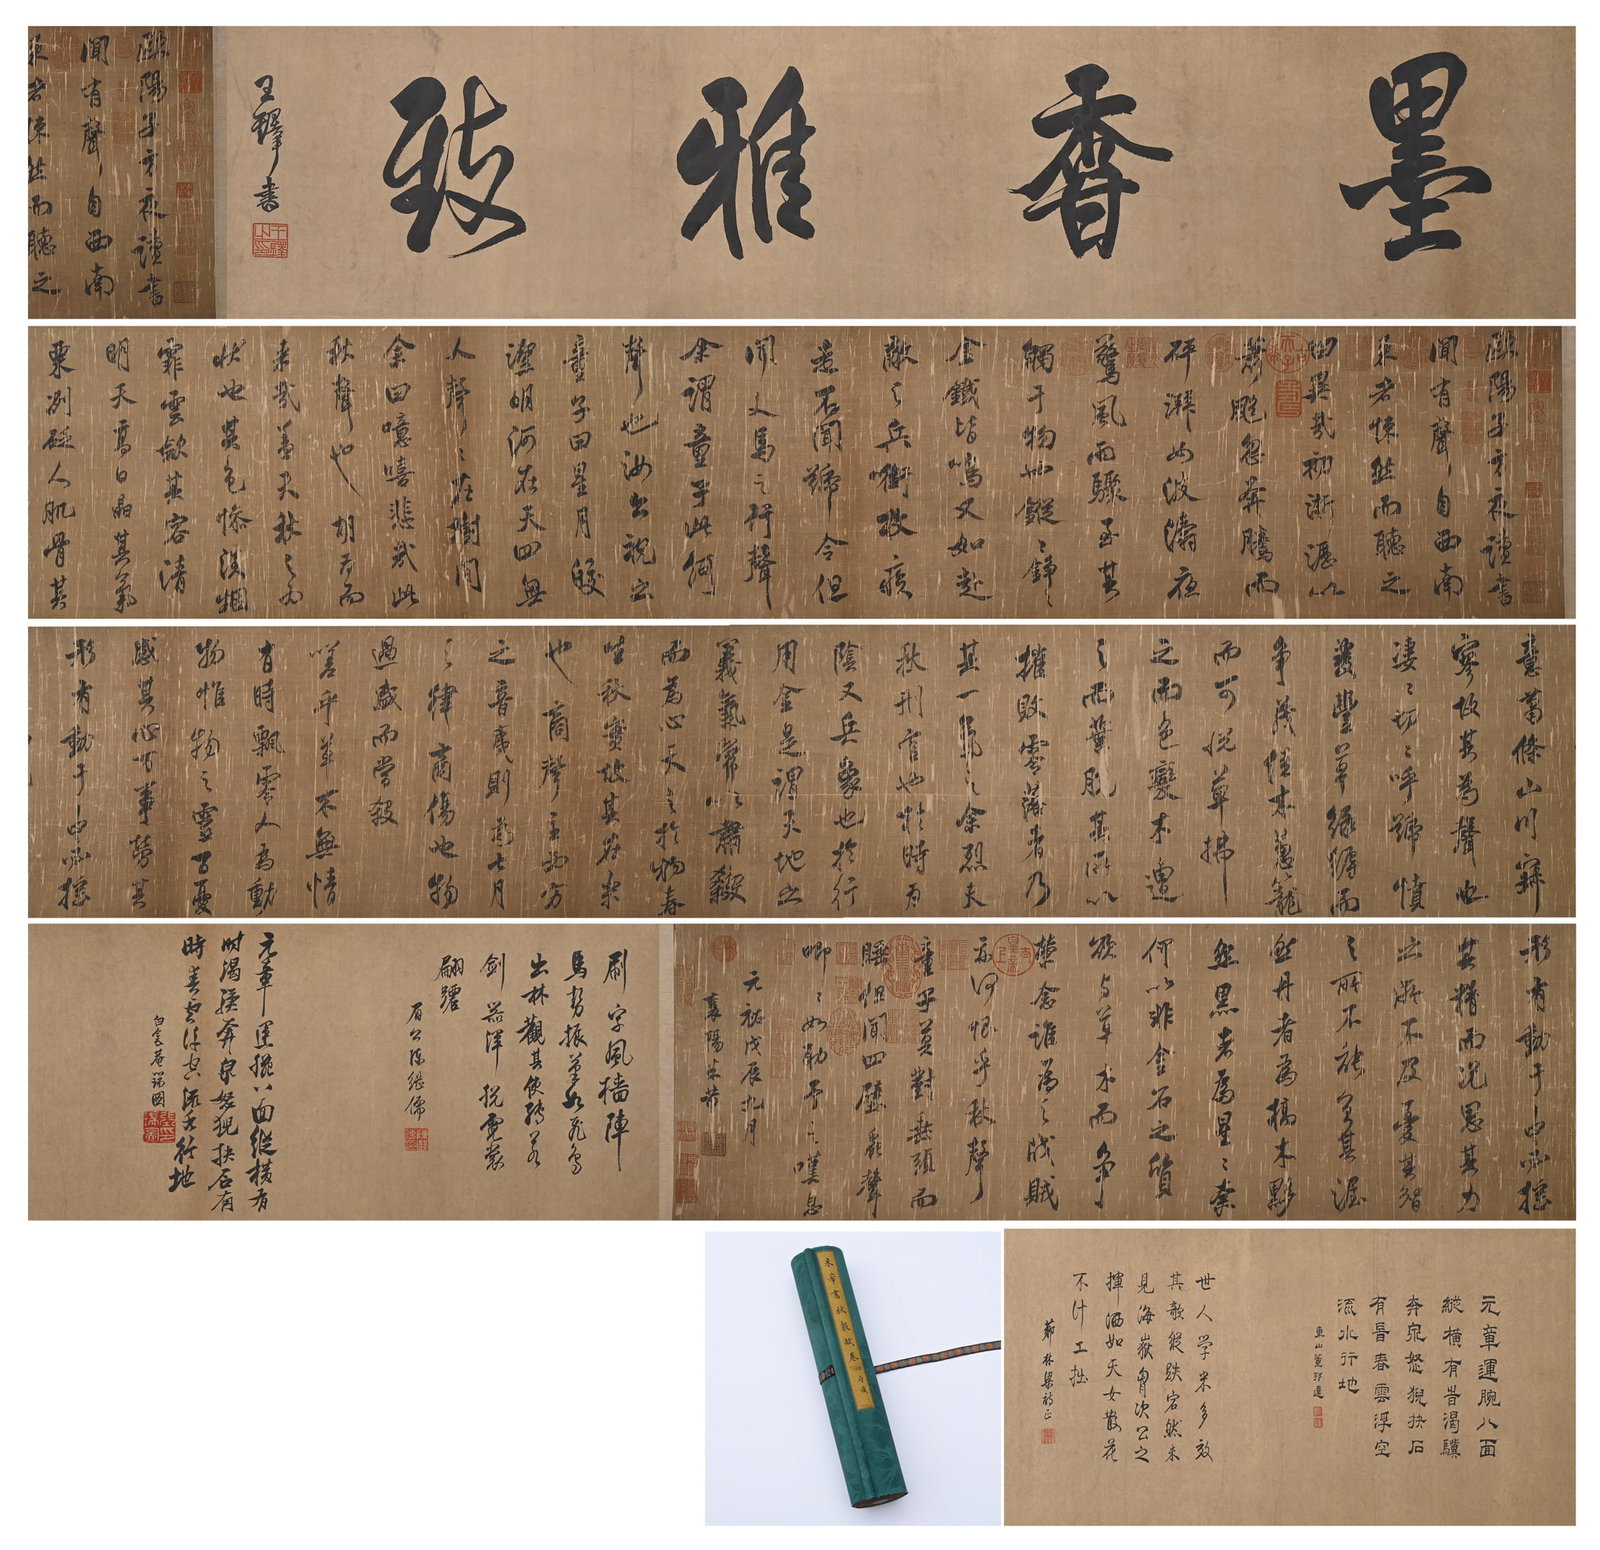 墨香雅致
王鐸書
歐陽子方夜讀書
聞有聲自西南
來者悚然而聽之
歐陽子方夜讀書
聞有聲自西南
來者悚然而聽之
曰異哉初淅瀝以
蕭颯忽奔騰而
砰湃如波濤夜
驚風雨驟至其
觸于物也鏦〻錚〻
金鐵皆鳴又如赴
敵之兵銜枚疾
走不聞號令但
聞人馬之行聲
余謂童子此何
聲也汝出視之
童子曰星月皎
潔明河在天四無
人聲〻在樹間
余曰噫嘻悲哉此
秋聲也胡為而
來哉蓋夫秋之為
狀也其色慘淡烟
霏雲斂其容清
明天高日晶其氣
栗冽砭人肌骨其
意蕭條山川寂
寥故其為聲也
淒〻切〻呼號憤
發豐草綠縟而
爭茂佳木蔥籠
而可悅草拂
之而色變木遭
之而葉脫其所以
摧敗零落者乃
其一氣之余烈夫
秋刑官也於時為
陰又兵象也於行
用金是謂天地之
義氣常以肅殺
而為心天之於物春
生秋實故其在樂
也商聲主西方
之音夷則為七月
之律商傷也物
過盛而當殺
嗟乎草木無情
有時飄零人為動
物惟物之靈百憂
感其心萬事勞其
形有動于中必搖
形有動于中必搖
其精而況思其力
之所不及憂其智
之所不能宜其渥
然丹者為槁木黟
然黑者為星〻奈
何以非金石之質
欲與草木而爭
榮念誰為之戕賊
亦何恨乎秋聲
童子莫對垂頭而
睡但聞四壁蟲聲
唧〻如助予之嘆息
元祐戊辰九月
襄陽米芾
刷字風檣陣
馬勢振如飛鳥
出林觀其使轉若
劍器渾脫霓裳
翩躚
眉公陳繼儒
元章運腕八面縱橫有
時渴驥奔泉怒猊抉石有
時春雲浮空流水行地
白毫菴瑞圖
米芾書秋聲賦卷內府藏
元章運腕八面
縱橫有時渴驥
奔泉怒猊抉石
有時春雲浮空
流水行地
東山董邦達
世人學米多效
其欹縱跌宕然未
見海嶽胸次公之
揮洒如天女散花
不計工拙
蕉林梁清正